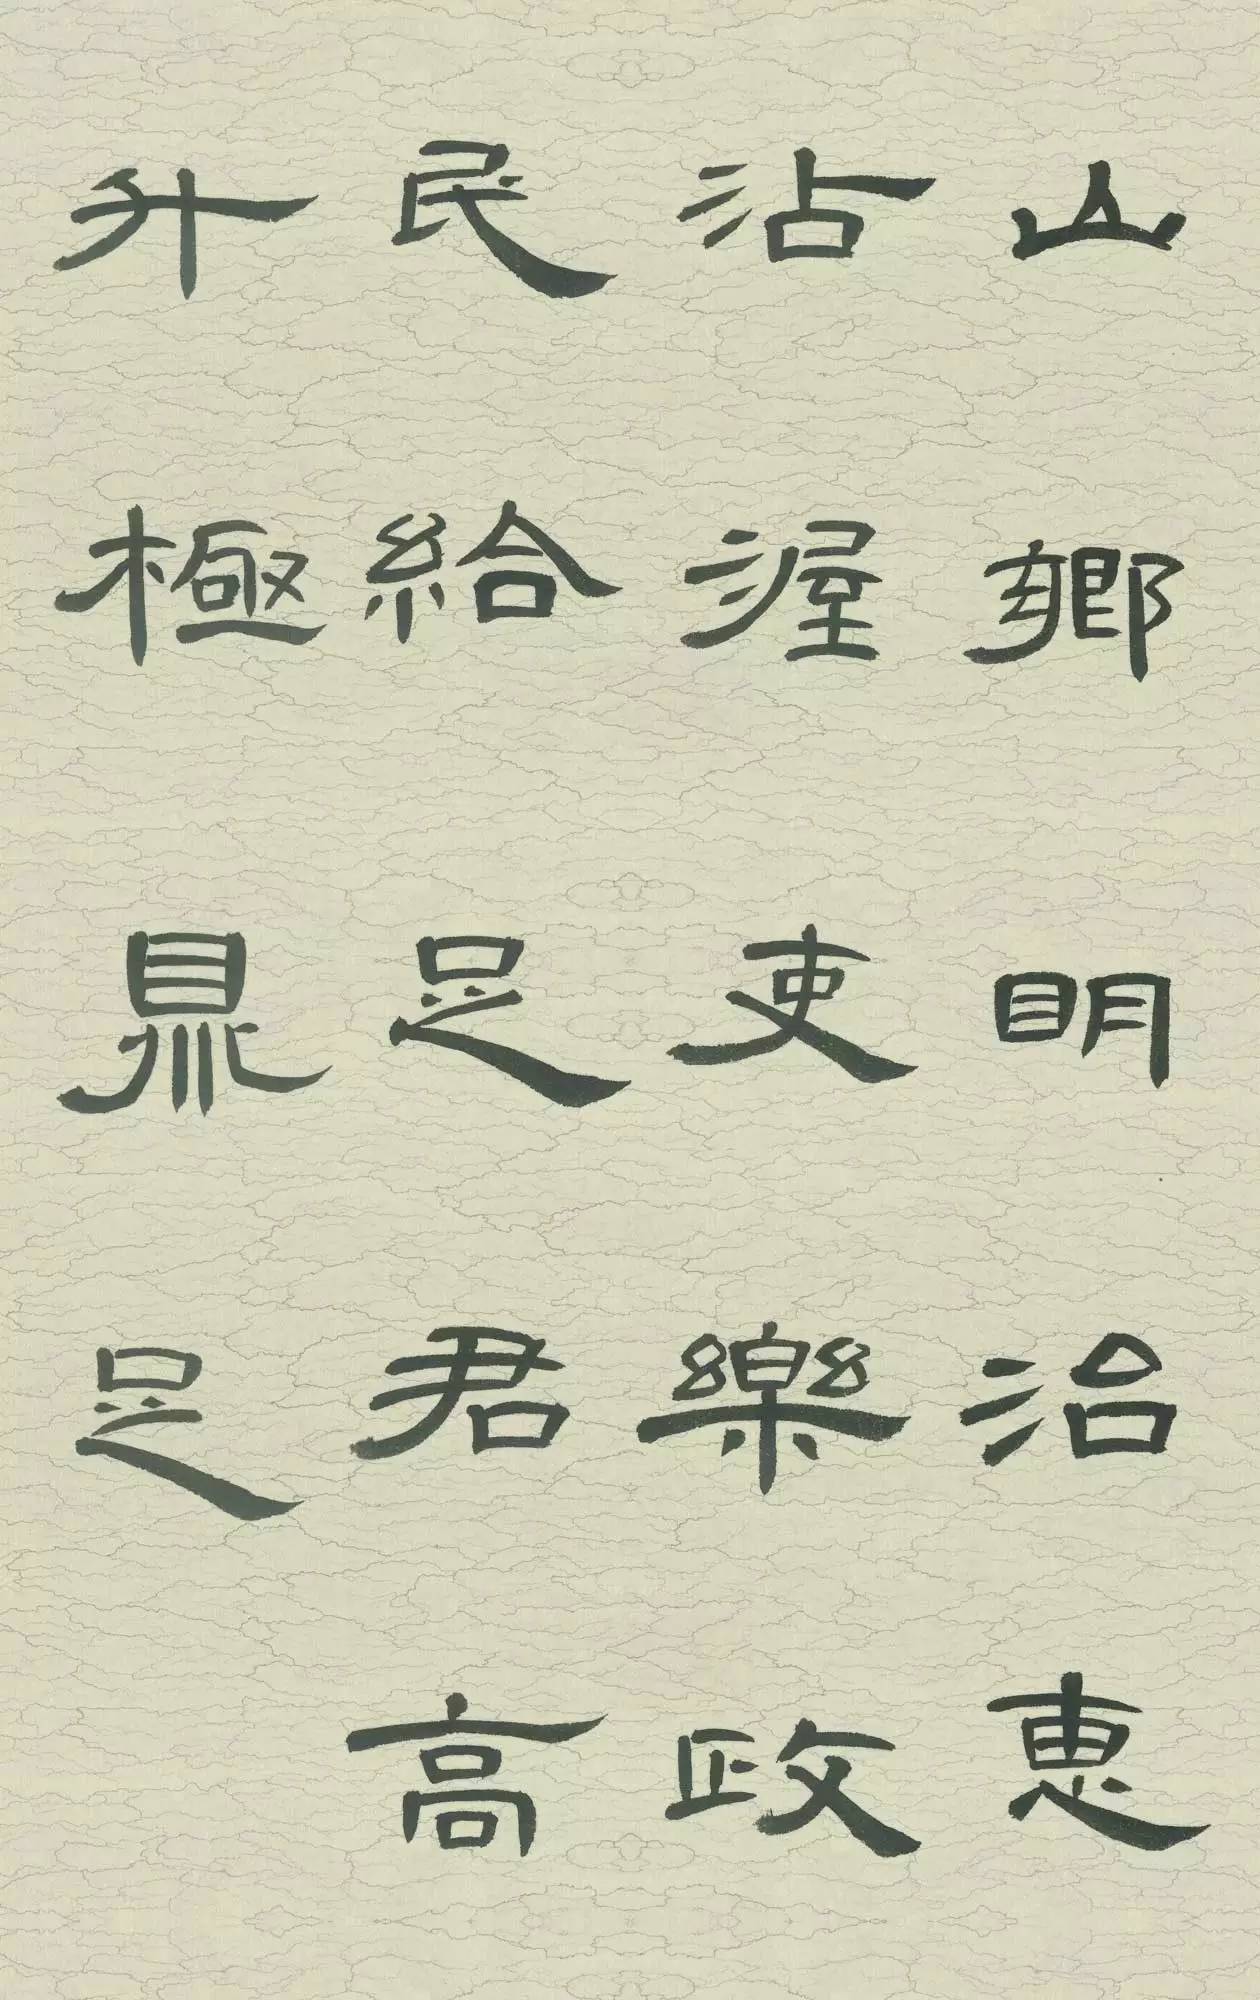 山鄉明治惠
沾渥吏樂政
民給足君高
升極鼎足